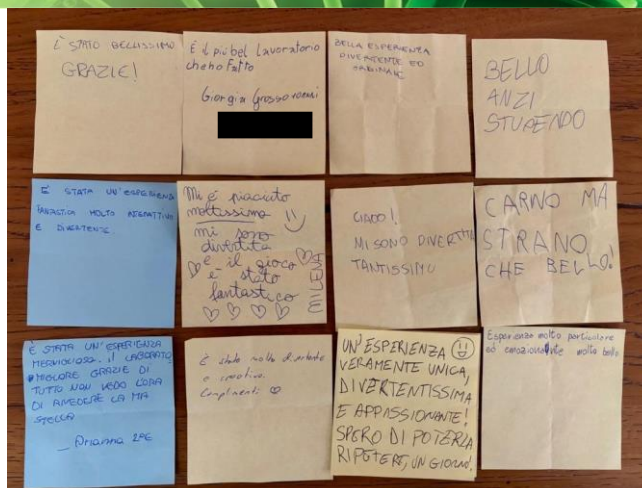 È STATO BELLISSIMO
GRAZIE!
È il più bel Lavoratorio
che ho Fatto
Giorgia
BELLA ESPERIENZA
DIVERTENTE ED
BELLO
ANZI
STUPENDO
È STATA UN'ESPERIENZA
FANTASTICA MOLTO
E DIVERTENTE.
Mi è piaciuto
moltissimo
mi sono
divertita
e il gioco
è stato
fantastico
MILENA
CIAOO!
MI SONO DIVERTITA
TANTISSIMO
CARNO MA
STRANO
CHE BELLO!
È STATA UN'ESPERIENZA
MERAVIGLIOSA. IL LABORATO
MIGLIORE GRAZIE DI
TUTTO NON VEDO L'ORA
DI RIVEDERE LA MIA
STELLA
Arianna 2ªE
È stato molto divertente
e creativo.
Complimenti
UN'ESPERIENZA
VERAMENTE UNICA,
DIVERTENTISSIMA
E APPASSIONANTE!
SPERO DI POTERLA
RIPETERE, UN GIORNO!
Esperienza molto particolare
ed emozionante molto bello